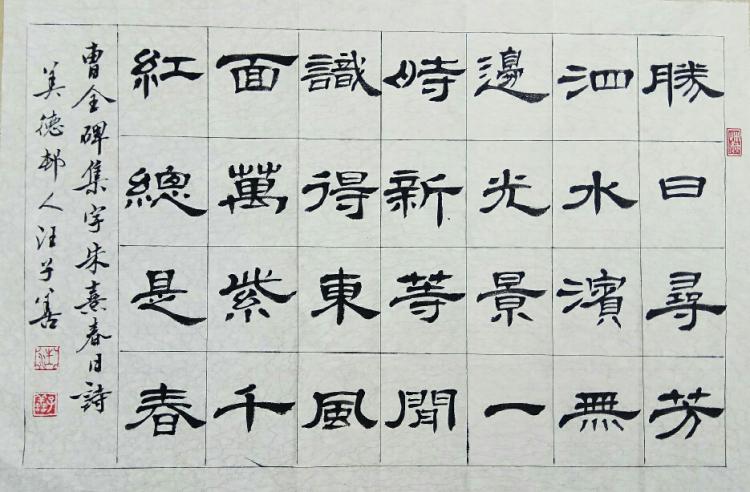 勝日尋芳
泗水濱無
邊光景一
時新等閒
識得東風
面萬紫千
紅總是春
曹全碑集字朱熹春日詩
美德邨人汪子善